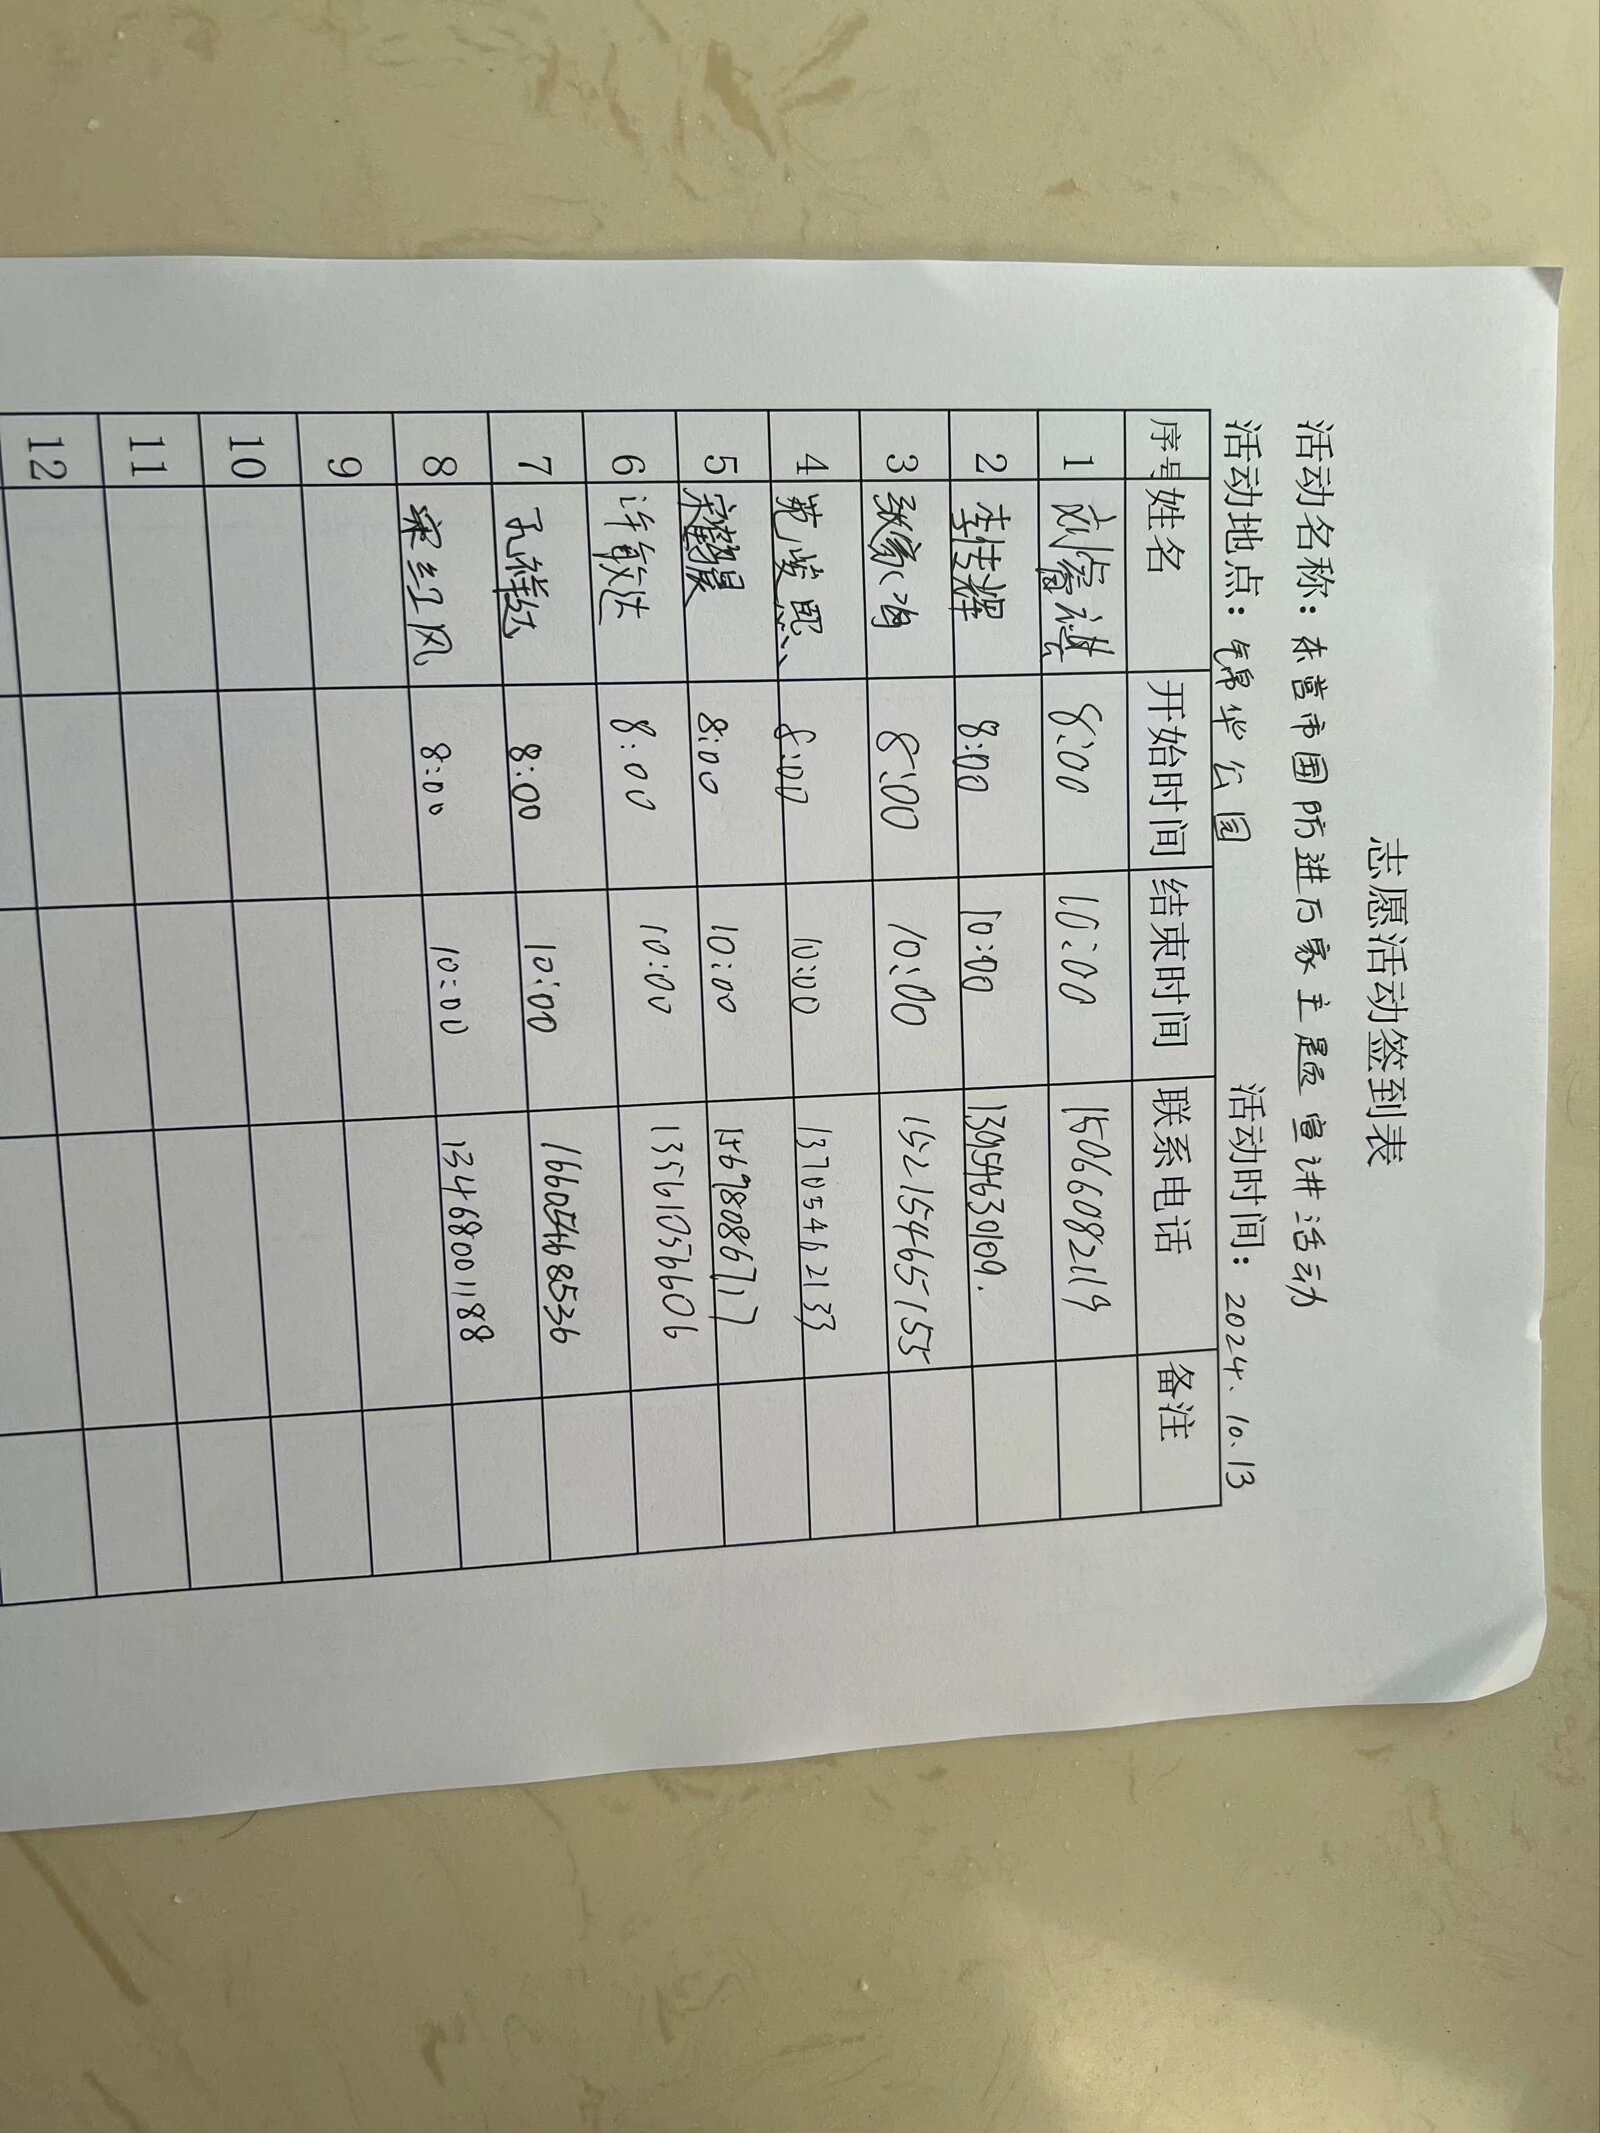 志愿活动签到表
活动名称：东营市国防进万家主题宣讲活动
活动地点：锦华公园 活动时间：2024.10.13
序号 姓名 开始时间 结束时间 联系电话 备注
1 刘睿祺 8:00 10:00 15066082119
2 李传辉 8:00 10:00 13915463019.
3 张家鸿 8:00 10:00 15215465155
4 苑峻恩 8:00 10:00 13705462133
5 宋鹤晨 8:00 10:00 15698086717
6 许敏达 8:00 10:00 13561056606
7 孔祥 8:00 10:00 16605468536
8 宋红风 8:00 10:00 13468001188
9
10
11
12